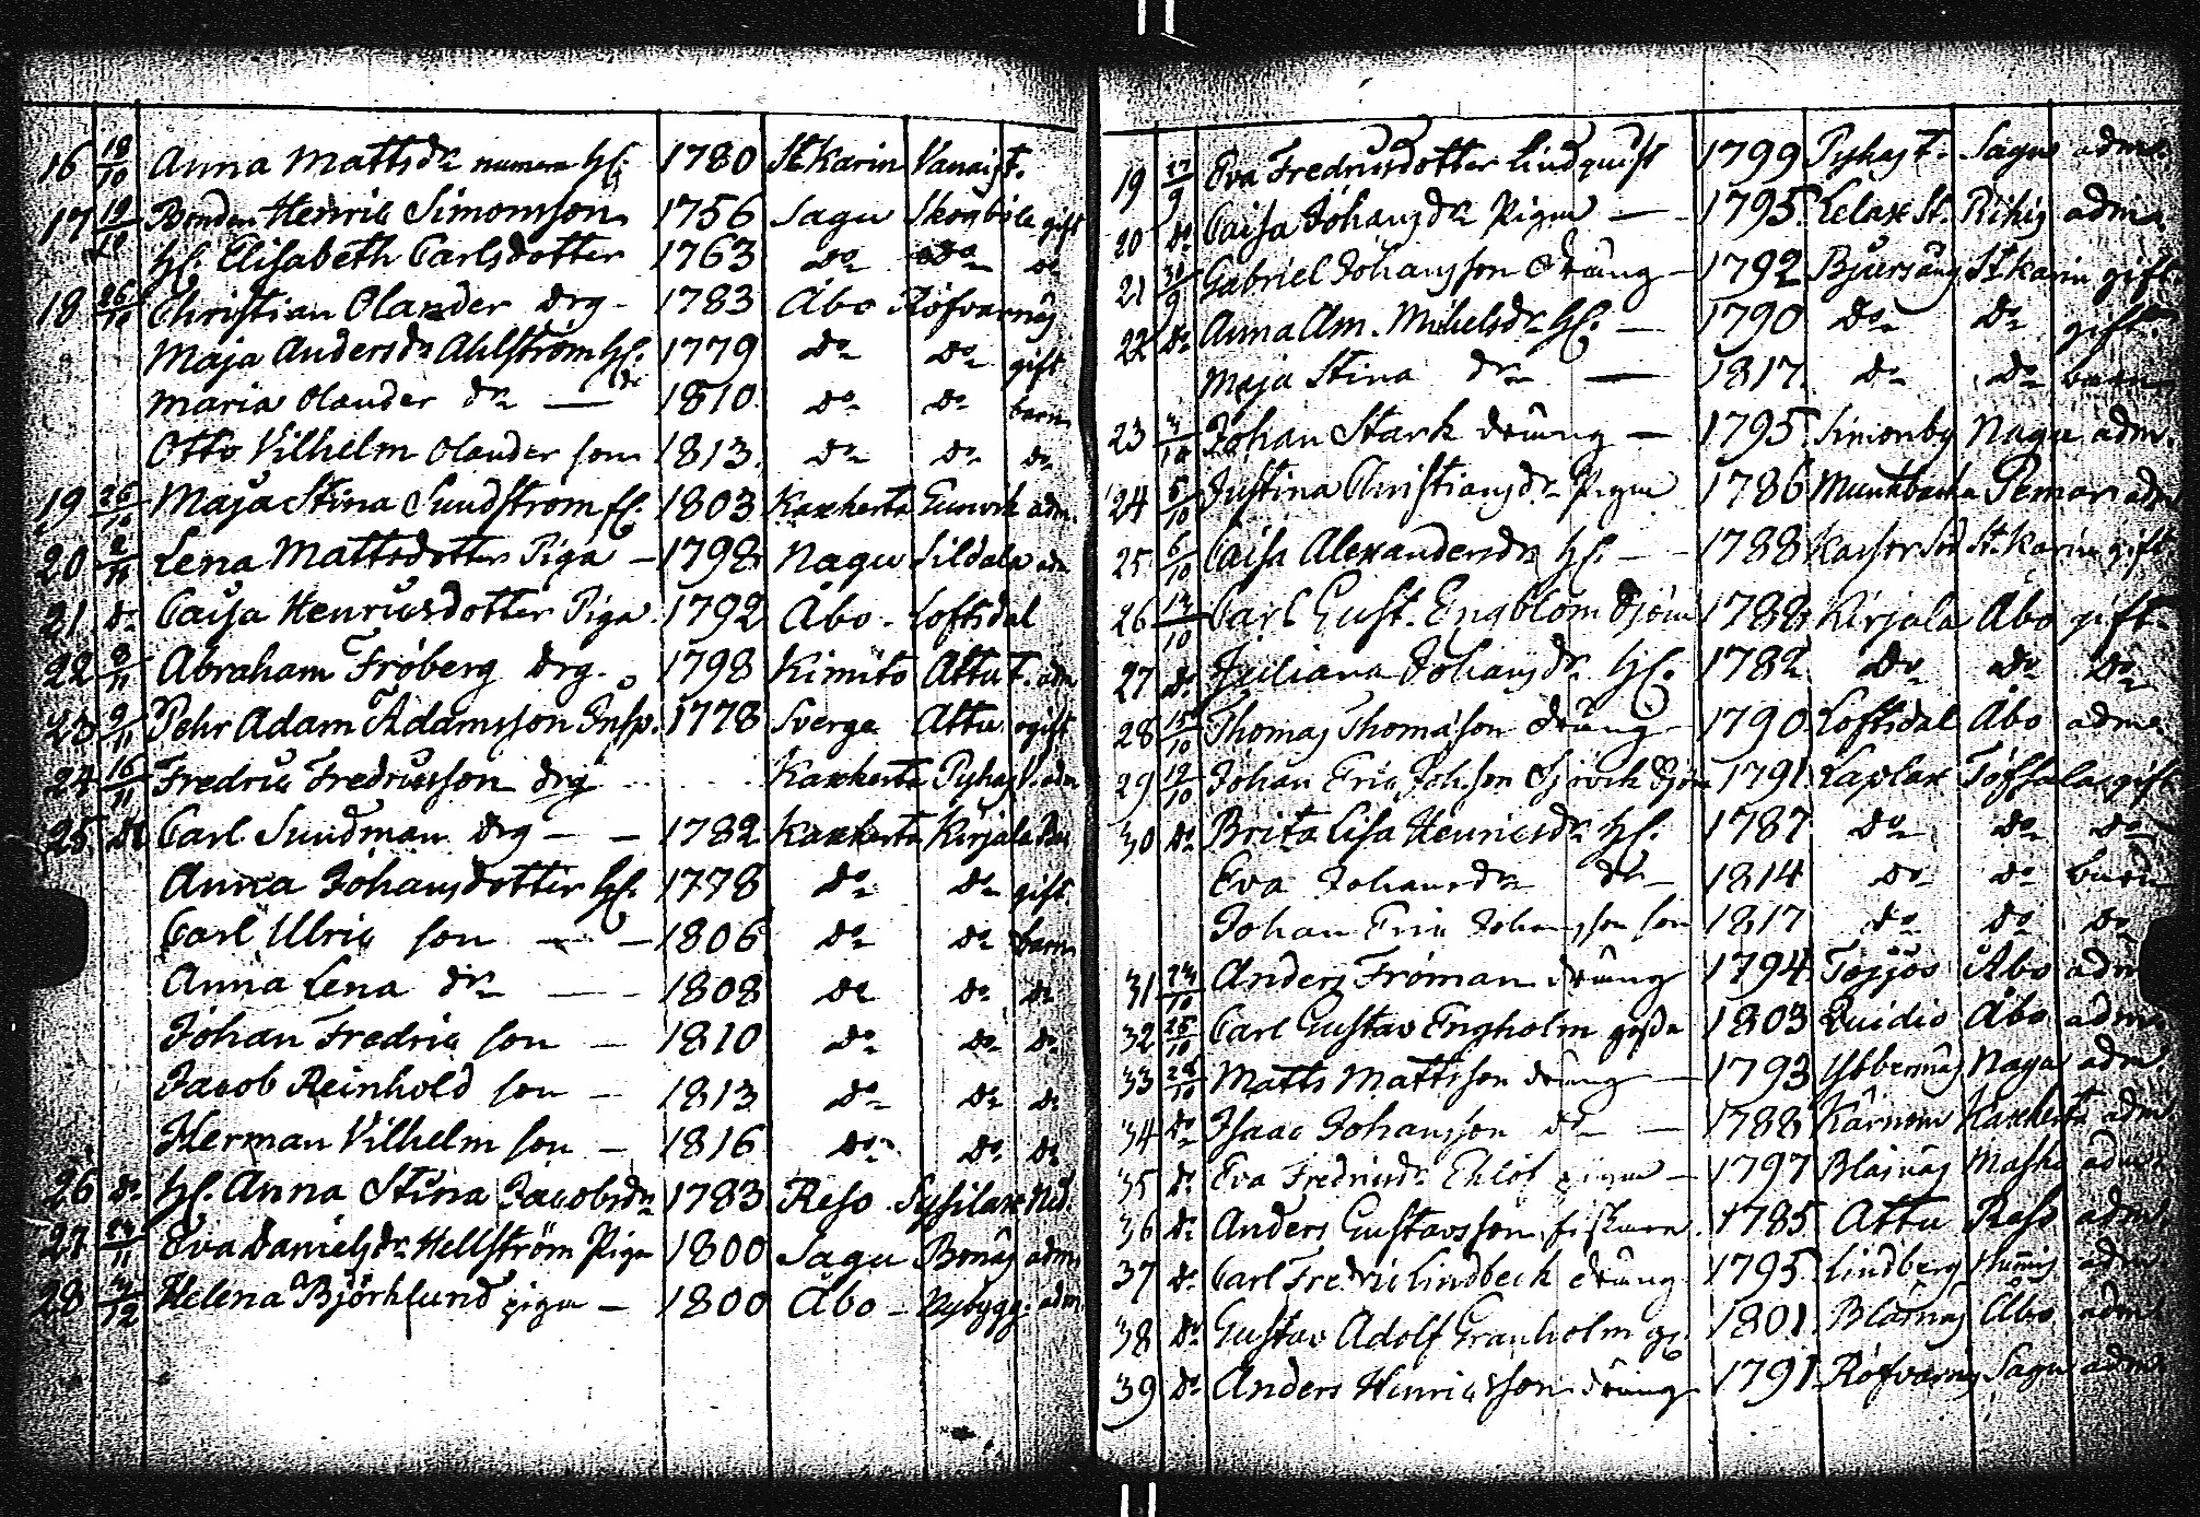 16 18/10 Anna Mattsdr numera hu. 1780 St Karin Vanais t.
17 19/10 Bonden Henric Simonsson 1756 Sagu Skogböle gift
hu. Elisabeth Carlsdotter 1763 do do do
18 26/10 Christian Olander drg - 1783 Åbo Röfvarnäs
Maja Andersdr Ahlström hu. 1779 do do gift
Maria Olander dr — 1810 do do barn
Otto Vilhelm Olander son 1813 do do do
19 26/10 Maja Stina Sundström fl. 1803 Kaxkerta Gunvik adm.
20 2/11 Lena Mattsdotter Piga — 1798 Nagu Sildala adm
21 do Caisa Henricsdotter Piga 1792 Åbo - Loftsdal
22 8/11 Abraham Fröberg drg. 1798 Kimito Attu T. adm
23 9/11 Pehr Adam Adamsson Insp. 1778 Sverge Attu ogift
24 16/11 Fredric Fredricsson drg Kaxkerta Pyhas t. adm
25 do Carl Sundman drg — — 1782 Kaxkerta Kirjala
Anna Johansdotter hu. 1778 do do gift
Carl Ulric son — — 1806 do do barn
Anna Lena dr — - 1808 do do do
Johan Fredric son — 1810 do do do
Jacob Reinhold son — 1813 do do do
Herman Vilhelm son — 1816 do do do
26 do hu. Anna Stina Jacobsdr 1783 Reso Sysilax
27 24/11 Eva Danielsdr Hellström Piga 1800 Sagu Bonäs adm
28 4/12 Helena Björklund piga — 1800 Åbo — Nybygg. adm.
19 27/9 Eva Fredricsdotter Lindquist 1799 Pyhas t. Sagu adm.
20 do Caisa Johansdr Piga — 1795 Lelax St. Rihis adm.
21 30/9 Gabriel Johansson dräng — 1792 Bjursäng St Karin gift
22 do Anna Am. Michelsdr hu. — 1790 do do gift
Maja Stina dr — 1817 do do barn
23 4/10 Johan Stark dräng — 1795 Simonby Nagu adm.
24 5/10 Justina Christiansdr Piga 1786 Munkbacka Pemar adm
25 6/10 Caisa Alexandersdr hu. — 1788 St. Karin gift.
26 14/10 Carl Gust. Engblom 1788 Kirjala Åbo gift
27 do Juliana Johansdr hu. 1782 do do do
28 15/10 Thomas Thomasson dräng — 1790 Loftsdal Åbo adm.
29 19/10 Johan Eric Johsson 1791 Laxlax Töfsala gift
30 do Brita Lisa Henricsdr hu. 1787 do do do
Eva Johansdr dr — 1814 do do barn
Johan Eric Johansson son 1817 do do do
31 24/10 Anders Fröman dräng 1794 Tojjos Åbo adm
32 25/10 Carl Gustav Engholm gosse 1803 Qvidio Åbo adm.
33 28/10 Matts Mattsson dräng — 1793 Ybbernäs Nagu adm.
34 do Isaac Johansson do — 1788 Kärnom Kaxkerta adm.
35 do Eva Fredricsdr Eklöf piga — 1797 Blåsnäs Masku adm.
36 do Anders Gustavsson fiskare 1785 Attu Reso adm.
37 do Carl Fredric Lindbeck dräng 1795 Lindberg adm.
38 do Gustav Adolf Granholm 1801 Blåsnäs Åbo adm.
39 do Anders Henricsson dräng 1791 Röfvarnäs Sagu adm.